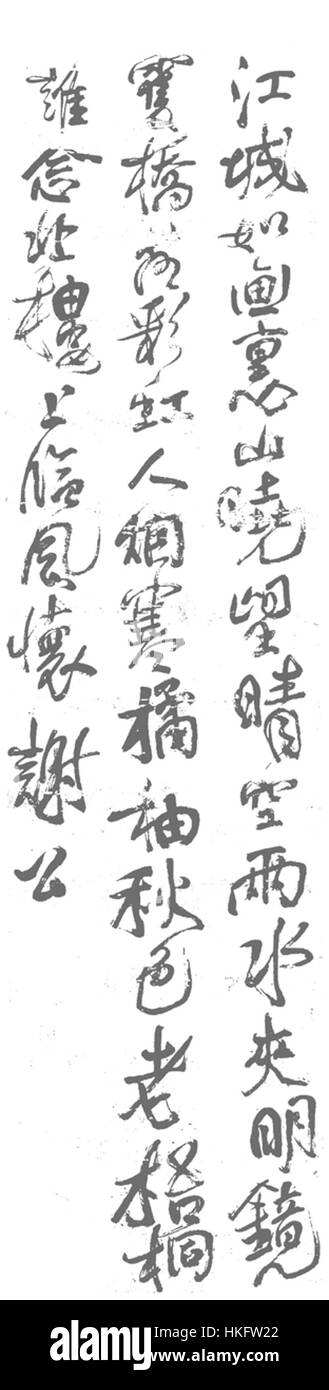 江城如画裏山曉望晴空兩水夾明鏡
雙橋落彩虹人烟寒橘柚秋色老梧桐
誰念北樓上臨風懷謝公
alamy
Image ID: HKFW22
www.alamy.com